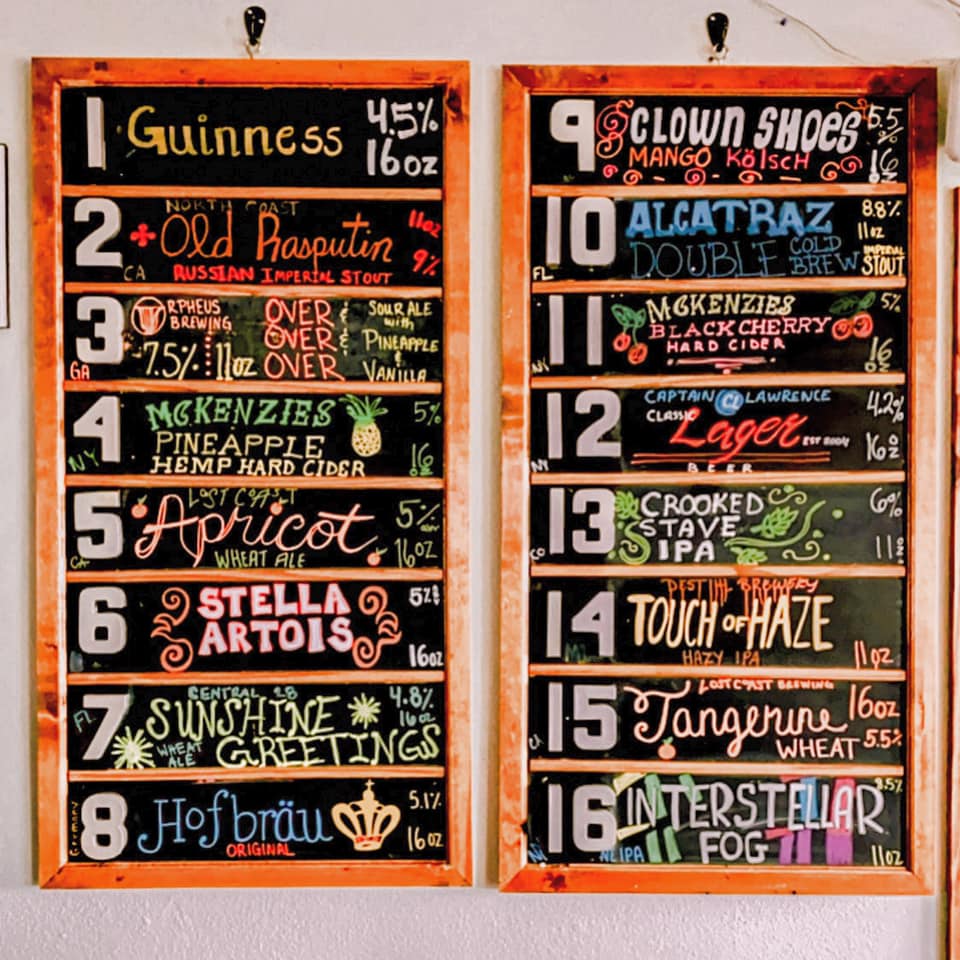 1 Guinness 4.5%
16oz
2 NORTH COAST
Old Rasputin 11oz
CA RUSSIAN IMPERIAL STOUT 9%
3 ORPHEUS BREWING
GA 7.5% 11oz
OVER
OVER
OVER
SOUR ALE
with
PINEAPPLE
&
VANILLA
4 MCKENZIES 5%
PINEAPPLE
NY HEMP HARD CIDER 16
oz
5 LOST COAST
Apricot 5%
CA WHEAT ALE 16oz
6 STELLA 5%
ARTOIS 16oz
7 CENTRAL 28 4.8%
FL SUNSHINE 16oz
WHEAT ALE GREETINGS
8 Hofbräu 5.1%
Germany ORIGINAL 16oz
9 CLOWN SHOES 5.5
%
MANGO KÖLSCH 16
10 ALCATRAZ 8.8%
11oz
FL DOUBLE COLD BREW IMPERIAL STOUT
11 MCKENZIES 5%
BLACK CHERRY
NY HARD CIDER 16
12 CAPTAIN CL LAWRENCE 4.2%
CLASSIC Lager 16oz
NY BEER
13 CROOKED 6%
STAVE
CO IPA 11oz
14 DESTIHL BREWERY
TOUCH OF HAZE
HAZY IPA 11oz
15 LOST COAST BREWING
Tangerine 16oz
WHEAT 5.5%
16 INTERSTELLAR 8.5%
FOG
NE IPA 11oz